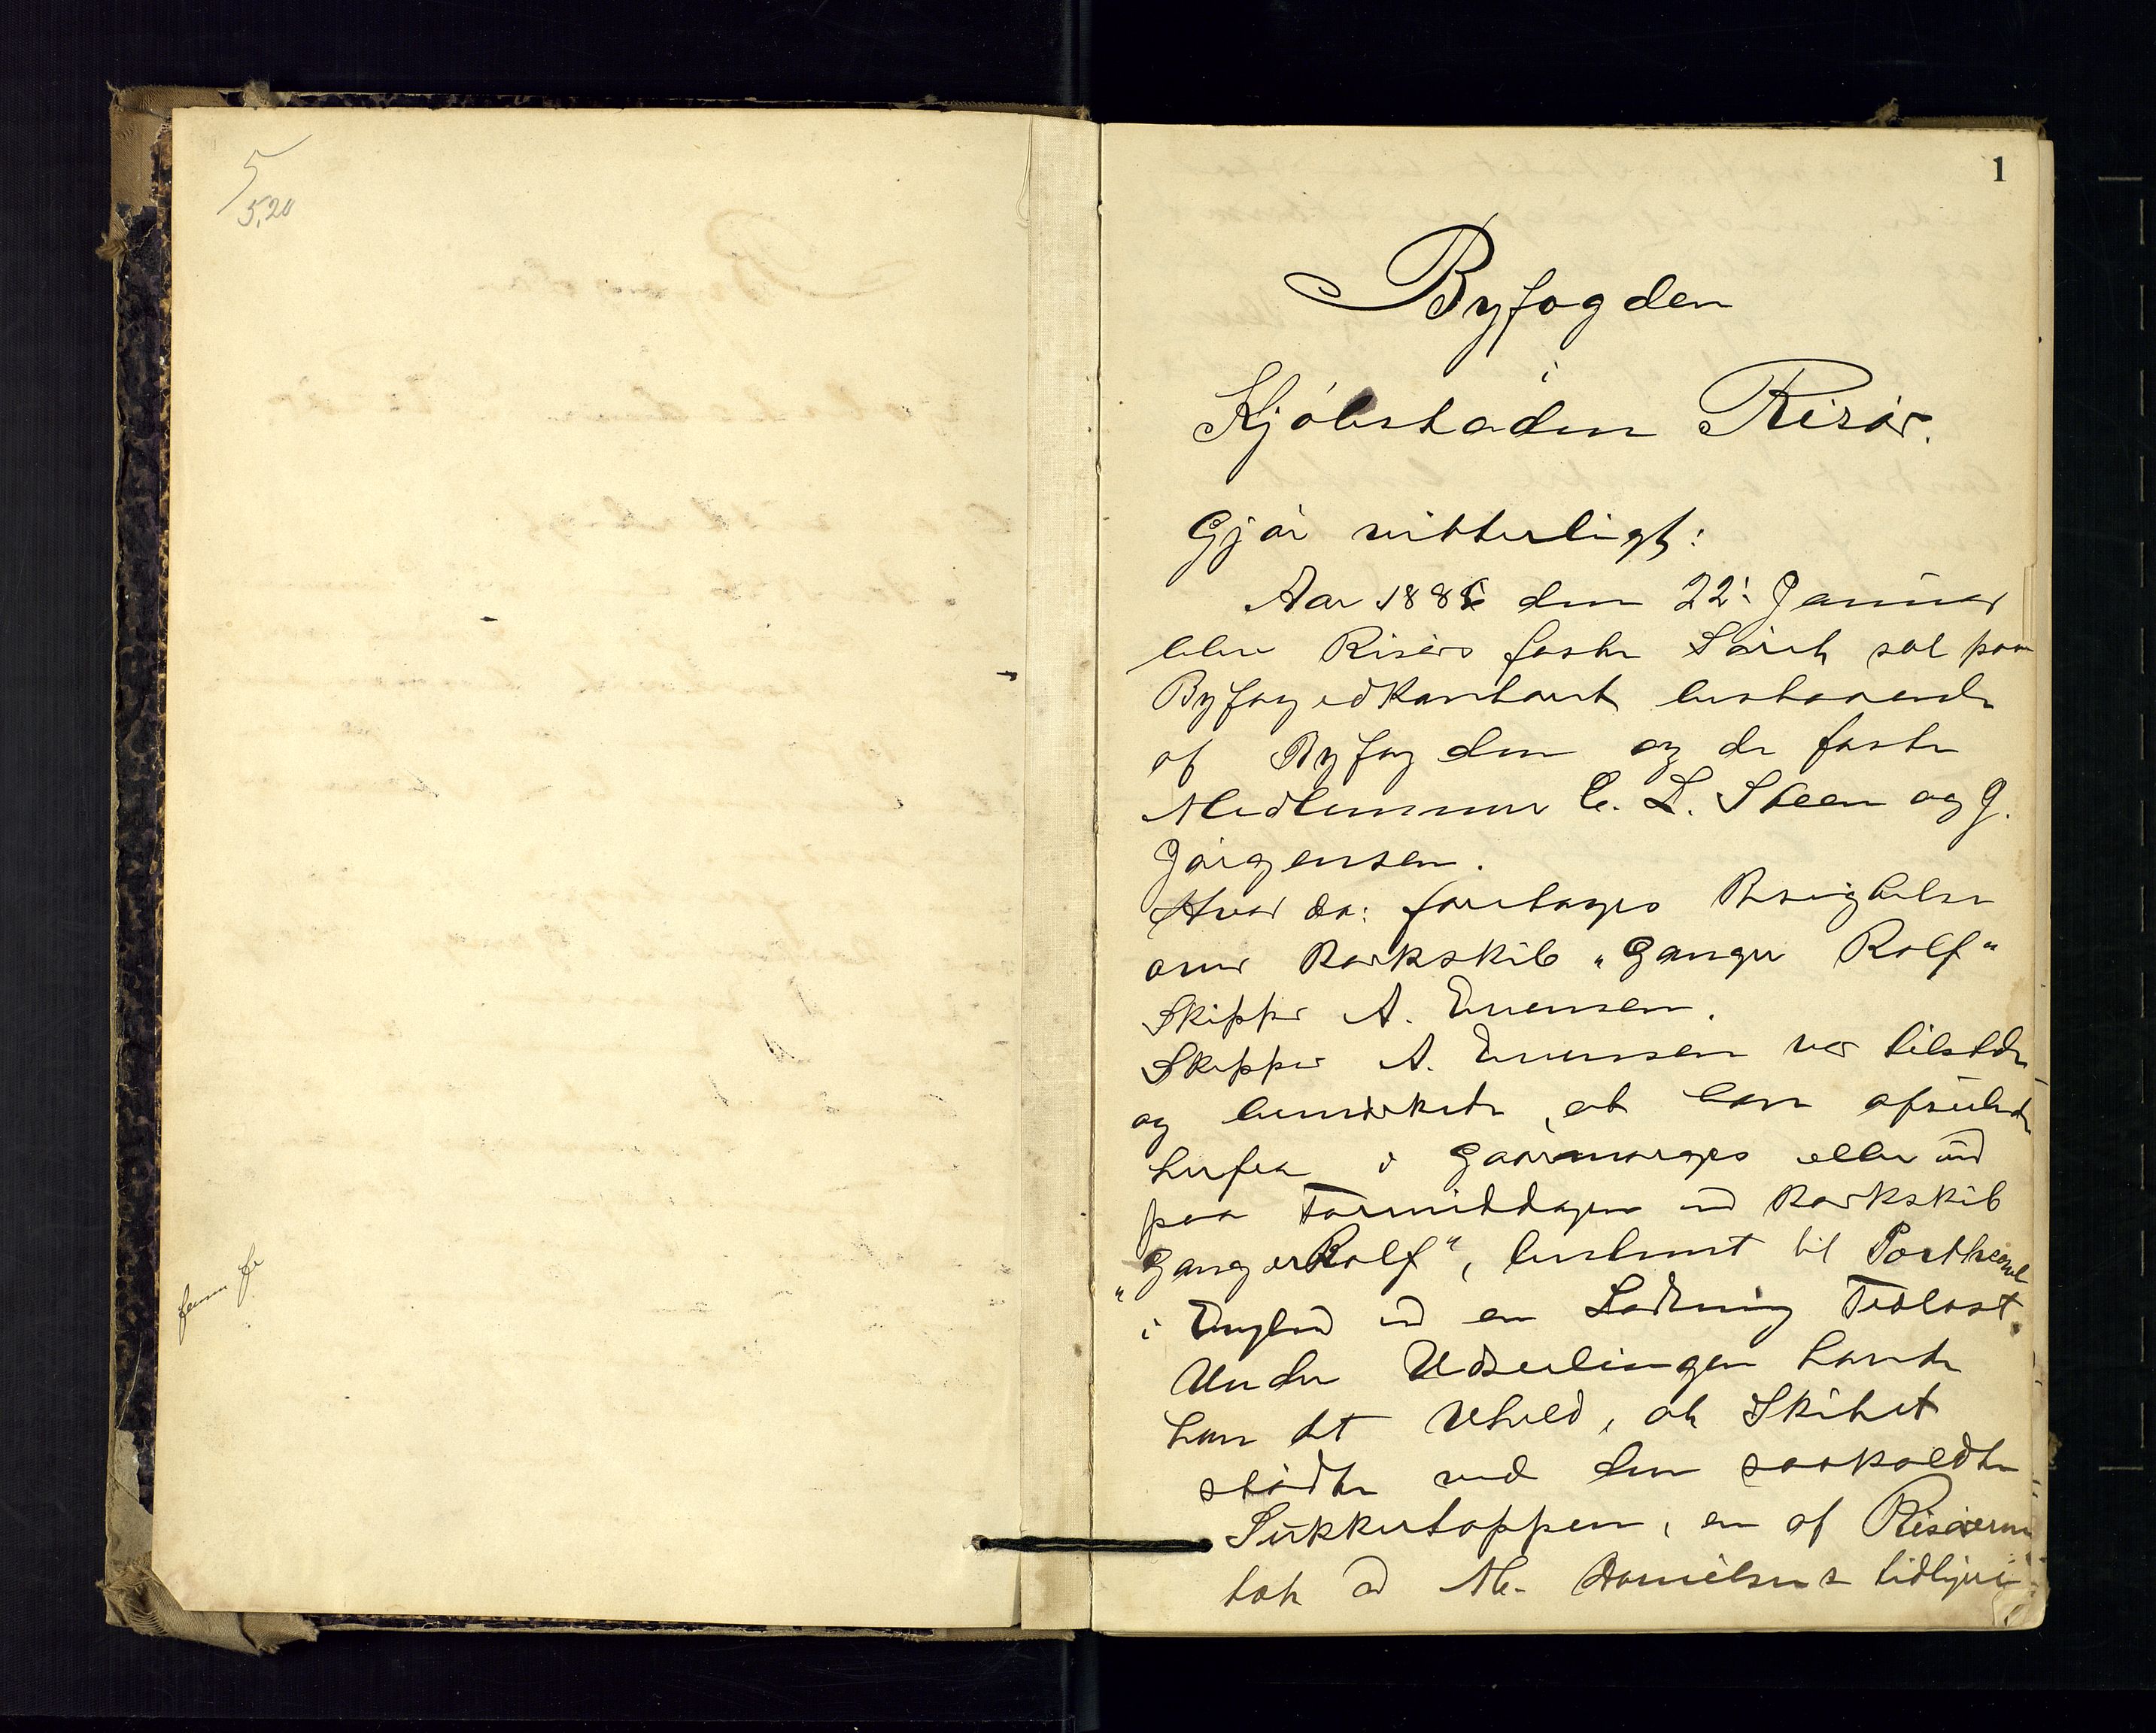 5
5,20
1
Byfogden
i
Kjöbstaden Risör.
Gjör vitterligt:
Aar 1886 den 22: Januar
blev Risörs faste Söret sat paa
Byfogedkontoret bestaaende
af Byfogden og de faste
Medlemmer C. L. Steen og J.
Jörgensen.
Hvor da: foretages Besigtelse
over Barkskib "Ganger Rolf"
Skipper A. Evensen.
Skipper A. Evensen var tilstede
og bemærkede, at han afseilede
herfra i Gaarmorges eller ud
paa Formiddagen med Barkskib
"Ganger Rolf", bestemt til
i England med en Ladning Trælast.
Under Udseilingen havde
han det Uheld, at Skibet
stödte ved den saakaldte
Sukkertoppen, en af Risöerne
tæt ved M. Danielsens tidligere